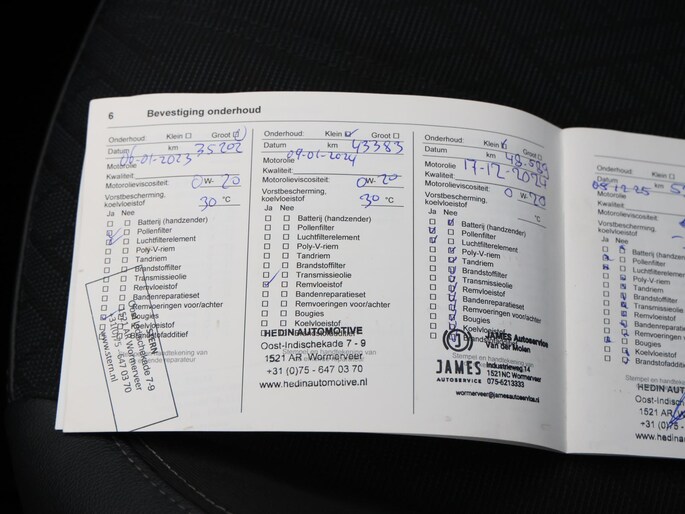 6 Bevestiging onderhoud
Onderhoud: Klein Groot
Datum km 35202
06-01-2023
Motorolie
Kwaliteit:
Motorolieviscositeit: 0 W- 20
Vorstbescherming,
koelvloeistof 30 °C
Ja Nee
Batterij (handzender)
Pollenfilter
Luchtfilterelement
Poly-V-riem
Tandriem
Brandstoffilter
Transmissieolie
Remvloeistof
Bandenreparatieset
Remvoeringen voor/achter
Bougies
Koelvloeistof
Brandstofadditief
STERN
Oost-Indischekade 7-9
1521 AR Wormerveer
+31(0)75 - 647 03 70
www.stern.nl
Onderhoud: Klein Groot
Datum km 43383
09-01-2024
Motorolie
Kwaliteit:
Motorolieviscositeit: 0 W- 20
Vorstbescherming,
koelvloeistof 30 °C
Ja Nee
Batterij (handzender)
Pollenfilter
Luchtfilterelement
Poly-V-riem
Tandriem
Brandstoffilter
Transmissieolie
Remvloeistof
Bandenreparatieset
Remvoeringen voor/achter
Bougies
Koelvloeistof
HEDIN AUTOMOTIVE
Oost-Indischekade 7 - 9
Stempel en handtekening van
1521 AR - Wormerveer
+31 (0)75 - 647 03 70
www.hedinautomotive.nl
Onderhoud: Klein Groot
Datum km
Motorolie 17-12-2024
Kwaliteit:
Motorolieviscositeit: 0 W- 20
Vorstbescherming,
koelvloeistof °C
Ja Nee
Batterij (handzender)
Pollenfilter
Luchtfilterelement
Poly-V-riem
Tandriem
Brandstoffilter
Transmissieolie
Remvloeistof
Bandenreparatieset
Remvoeringen voor/achter
Bougies
Koelvloeistof
JAMES Autoservice
Van der Molen
Stempel en handtekening van
JAMES
AUTOSERVICE
Industrieweg 14
1521NC Wormerveer
075-6213333
wormerveer@jamesautoservice.nl
Onderhoud:
Datum
Motorolie
Kwaliteit:
Motorolieviscositeit:
Vorstbescherming,
koelvloeistof
Ja Nee
Batterij (handzender)
Pollenfilter
Luchtfilterelement
Poly-V-riem
Tandriem
Brandstoffilter
Transmissieolie
Remvloeistof
Bandenreparatieset
Remvoeringen
Bougies
Koelvloeistof
Brandstofadditief
HEDIN AUT
Oost-Indisch
1521 AR
+31 (0)75
www.hedina